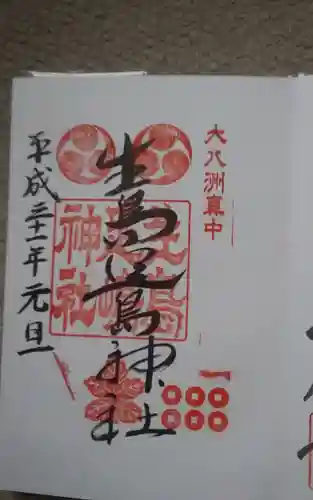 大八洲真中
生島足島神社
生島足島神社
平成三十一年元旦